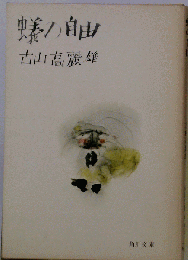 蟻の自由
古山高麗雄
角川文庫